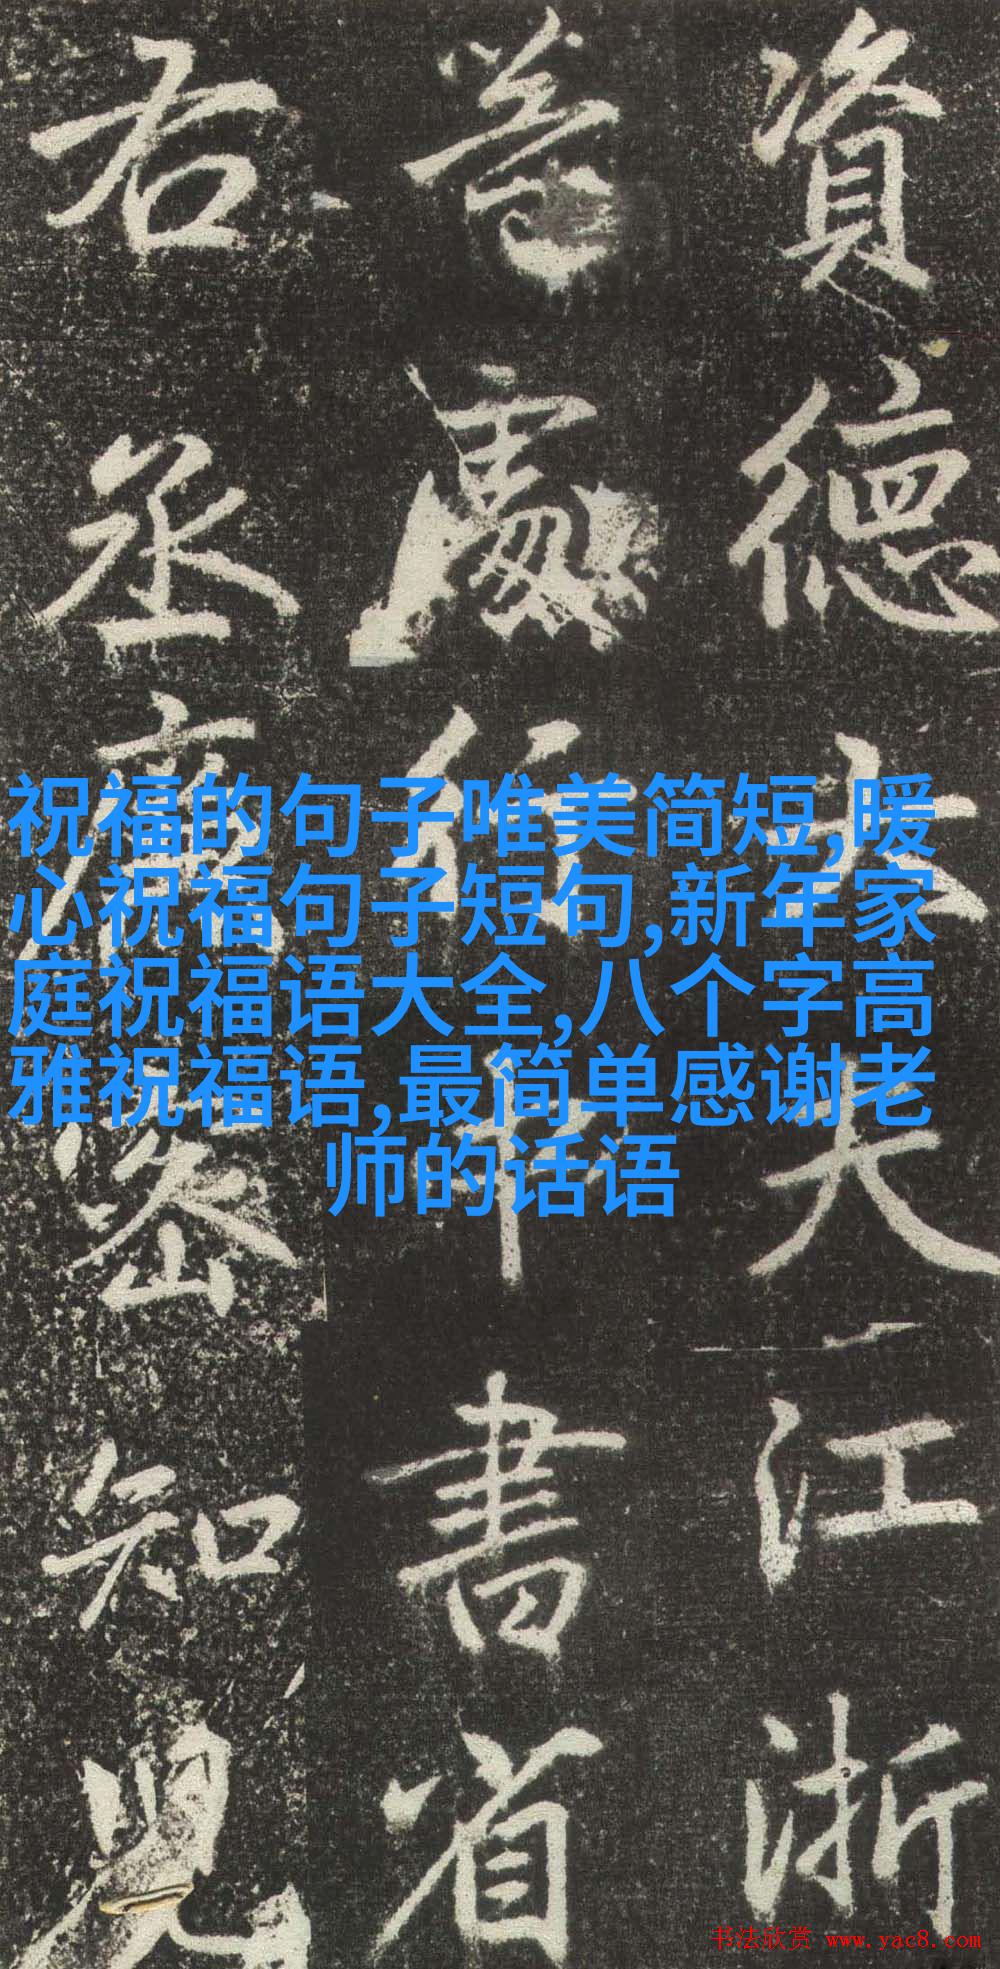 祝福的句子唯美简短,暖
心祝福句子短句,新年家
庭祝福语大全,八个字高
雅祝福语,最简单感谢老
师的话语
資德大夫江浙
等處行中書省
右丞廉密知
书法欣赏 www.yac8.com